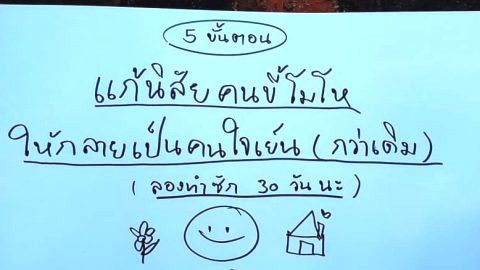 5 ขั้นตอน
แก้นิสัยคนขี้โมโห
ให้กลายเป็นคนใจเย็น (กว่าเดิม)
(ลองทำซัก 30 วันนะ)